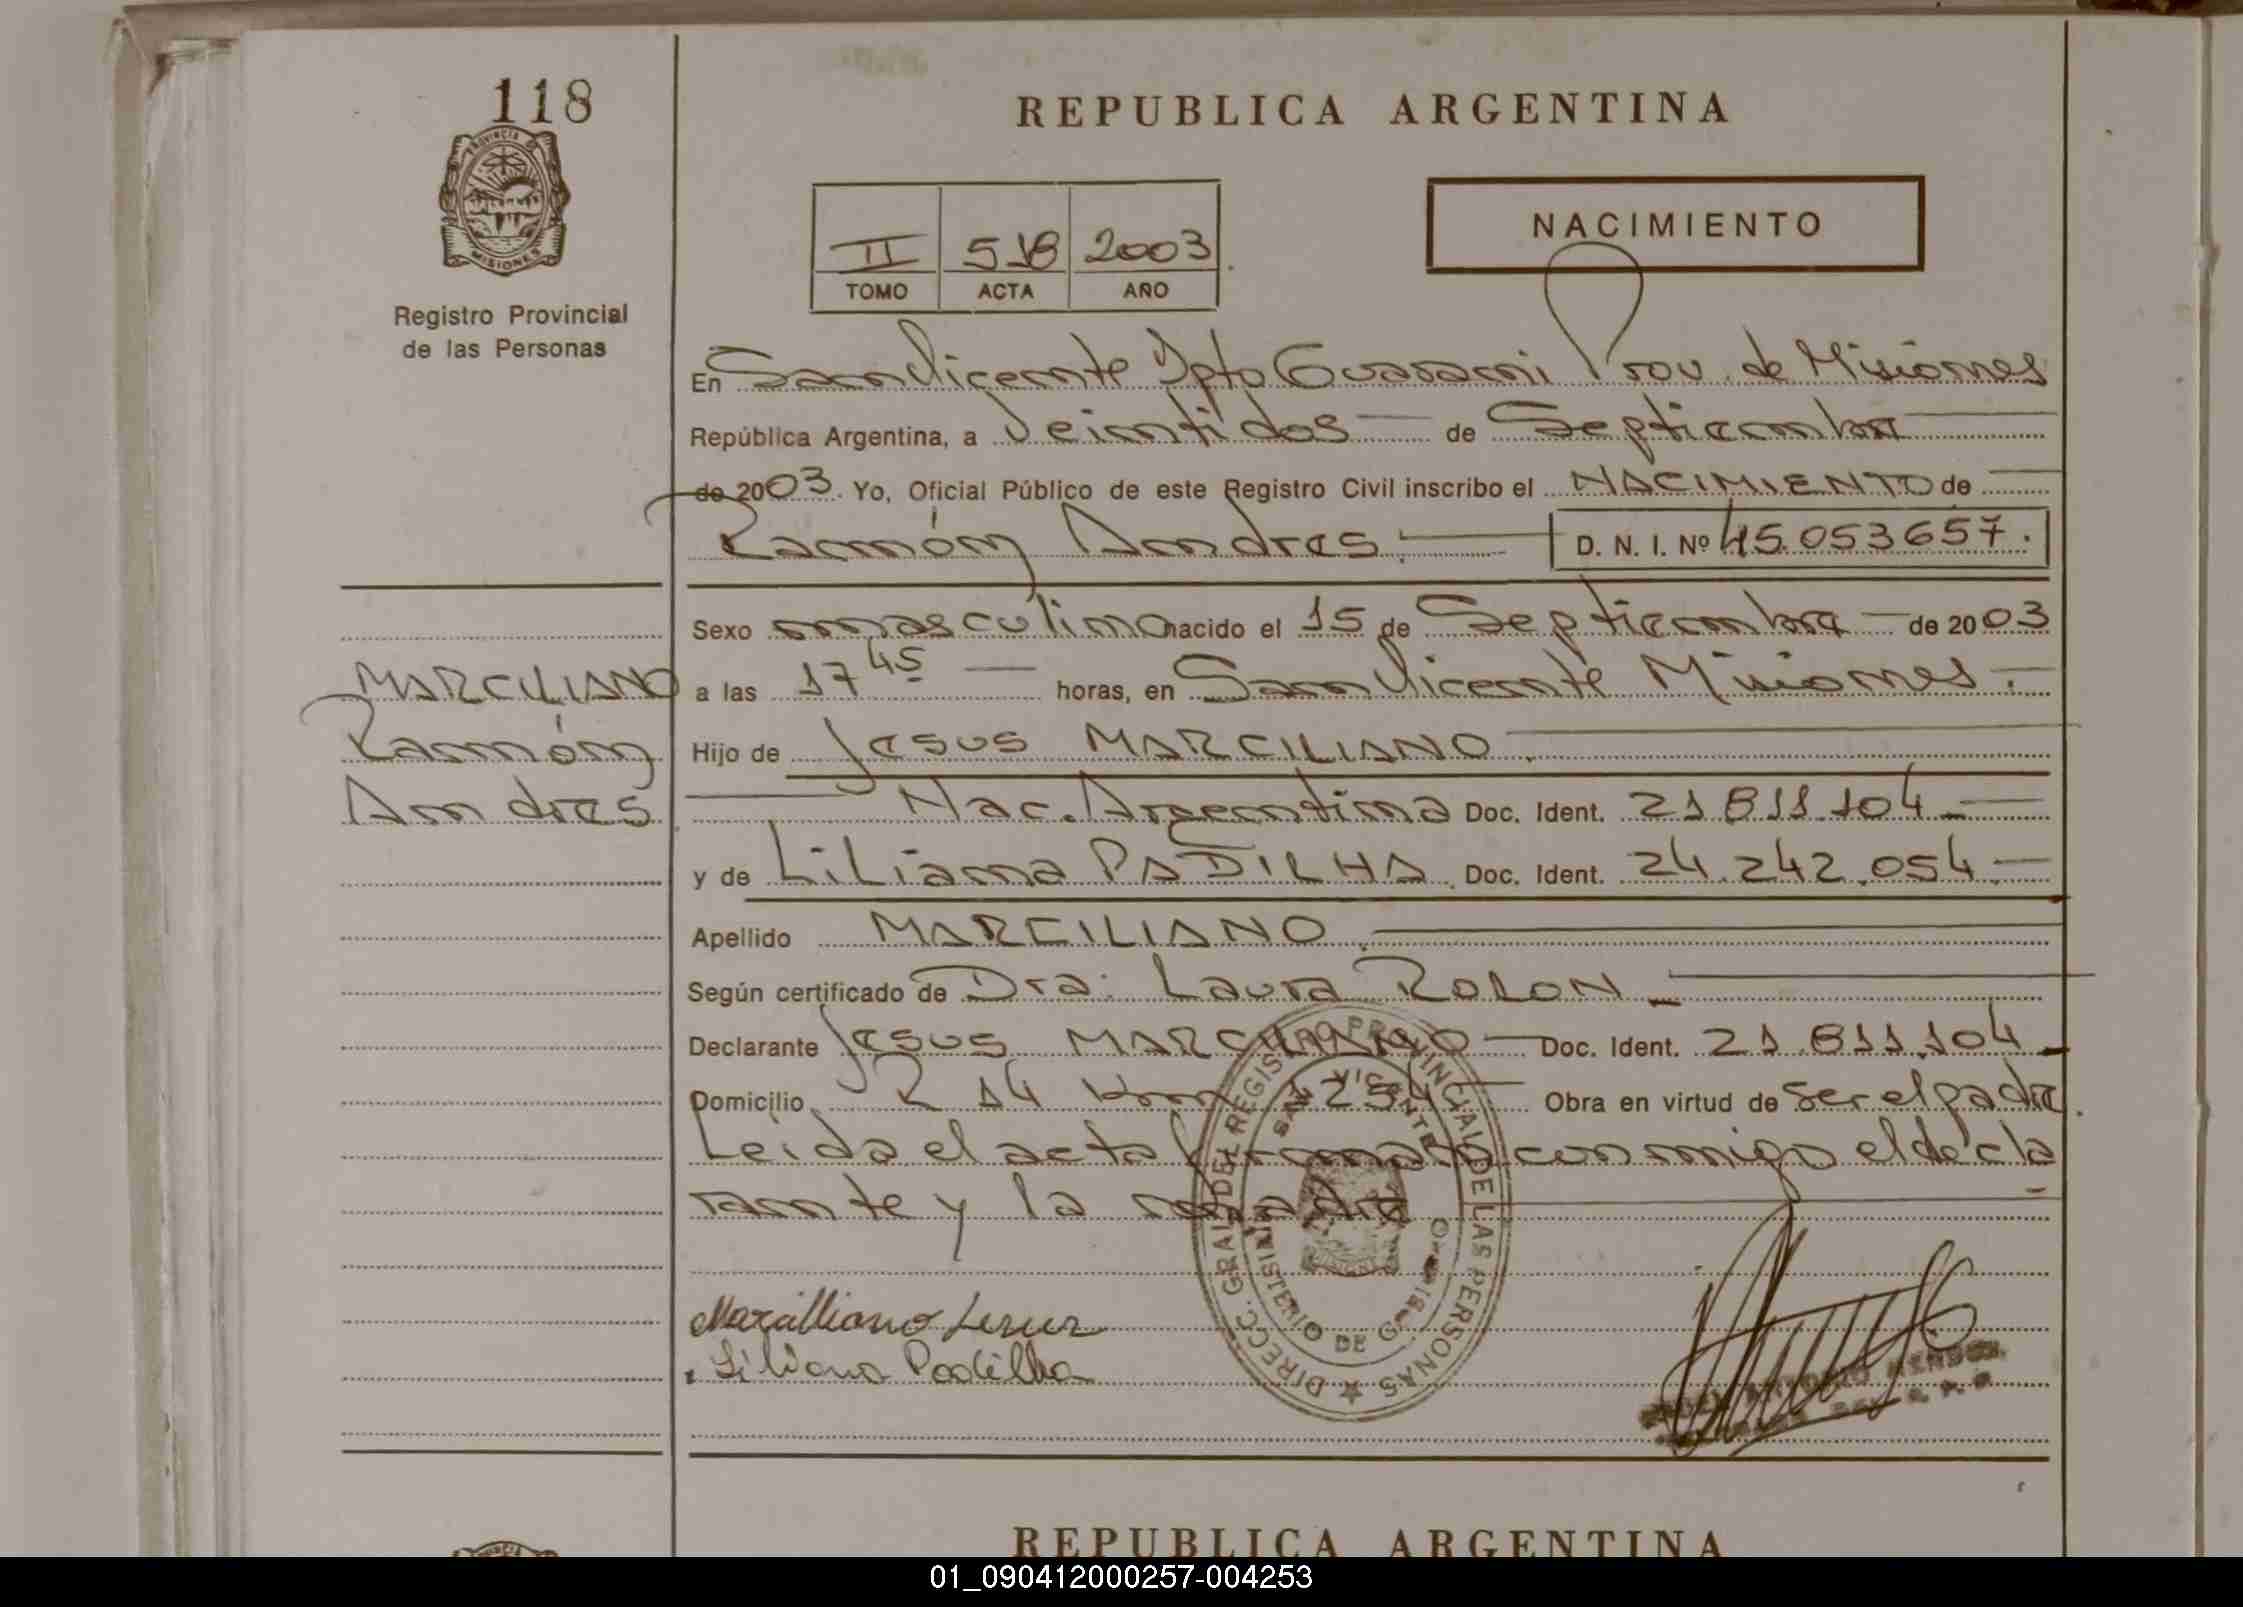 118
PROVINCIA DE
MISIONES
Registro Provincial
de las Personas
REPUBLICA ARGENTINA
NACIMIENTO
II 518 2003
TOMO ACTA AÑO
En San Vicente Dpto Guarani Prov. de Misiones
República Argentina, a Veintidos de Septiembre
de 2003. Yo, Oficial Público de este Registro Civil inscribo el NACIMIENTO de
Ramón Andres. D. N. I. Nº 45.053657.
Sexo masculino nacido el 15 de Septiembre de 2003
MARCILIANO
Ramón
Andres
a las 17 45 horas, en San Vicente Misiones.
Hijo de Jesus MARCILIANO.
Nac. Argentina Doc. Ident. 21.811.104
y de Liliana PADILHA. Doc. Ident. 24.242.054
Apellido MARCILIANO.
Según certificado de Dra. Laura ROLON
Declarante Jesus MARCILIANO Doc. Ident. 21.811.104
Domicilio R 14 Km 1254 Obra en virtud de ser el padre.
Leida el acta firman conmigo el decla
rante y la madre
DIRECC. GRAL. DEL REGISTRO PROVINCIAL DE LAS PERSONAS
SAN VICENTE
MINISTERIO DE GOBIERNO
Marcilliano Jesus
Liliana Padilha
REPUBLICA ARGENTINA
01_090412000257-004253